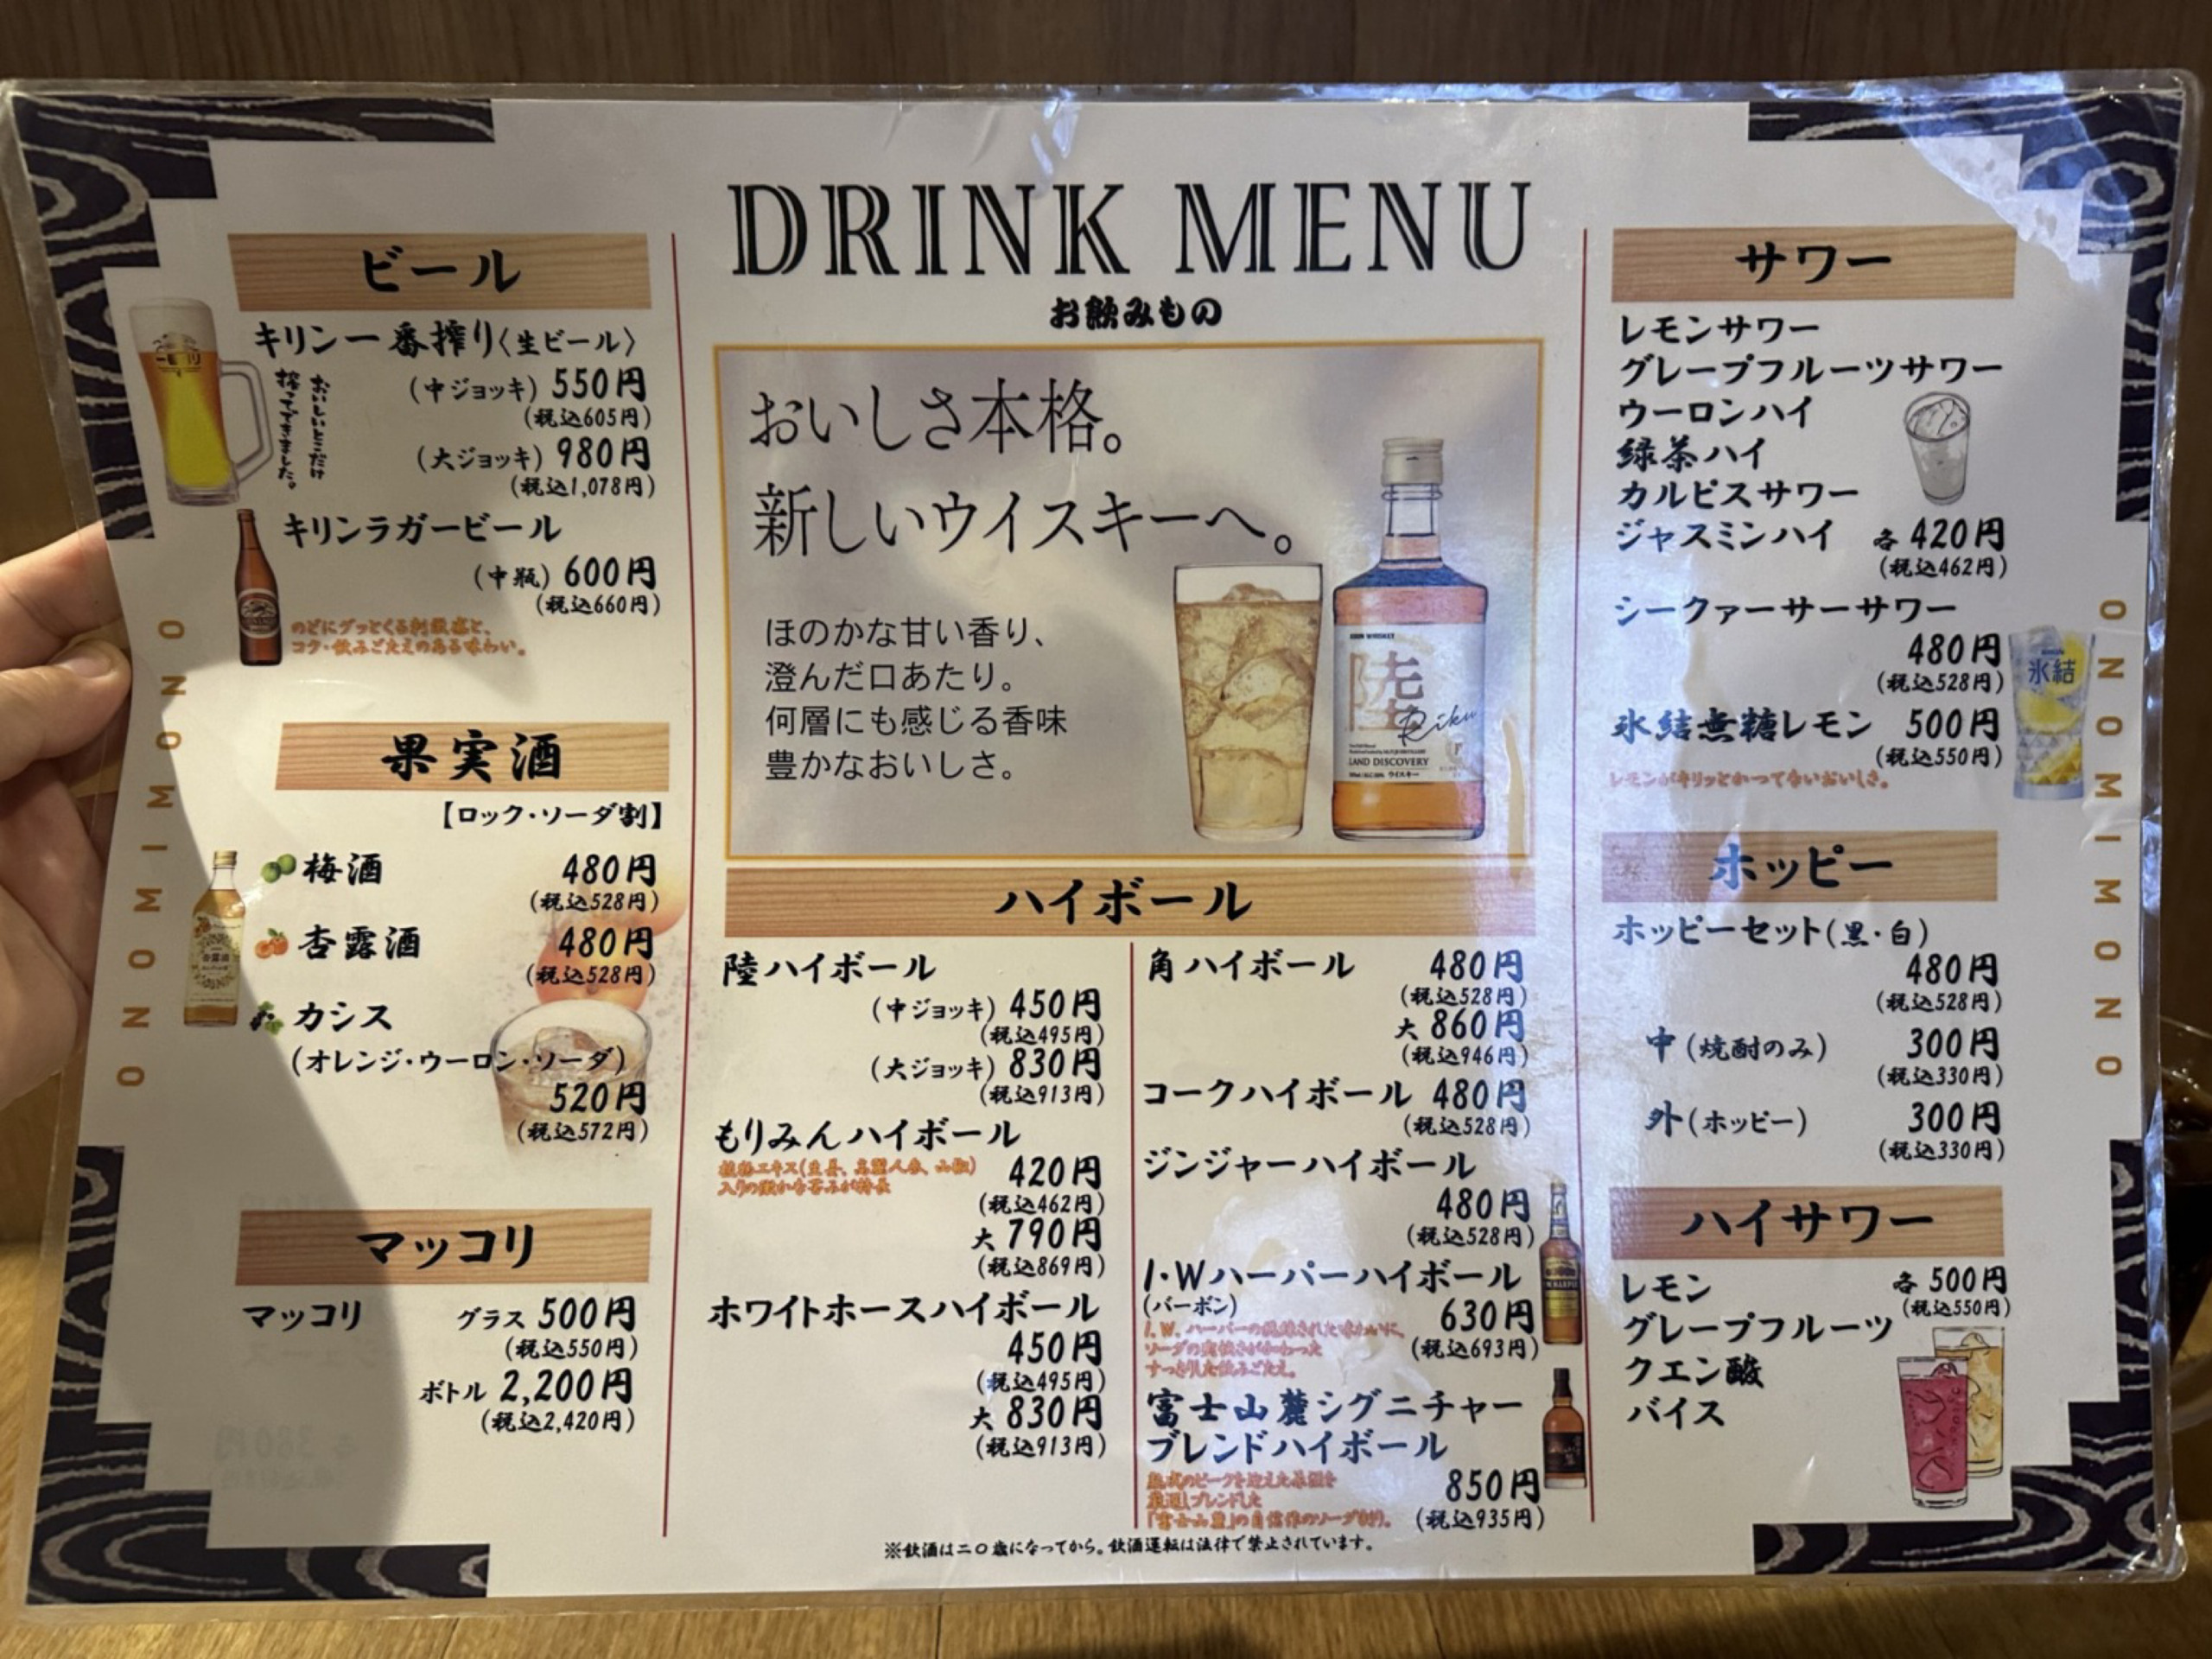 DRINK MENU
お飲みもの
ビール
キリン一番搾り〈生ビール〉
おいしいとこだけ
搾ってできました。
(中ジョッキ) 550円
(税込605円)
(大ジョッキ) 980円
(税込1,078円)
キリンラガービール
(中瓶) 600円
(税込660円)
のどにグッとくる刺激感と、
コク・飲みごたえのある味わい。
果実酒
【ロック・ソーダ割】
梅酒 480円
(税込528円)
杏露酒 480円
(税込528円)
カシス
(オレンジ・ウーロン・ソーダ)
520円
(税込572円)
マッコリ
マッコリ グラス 500円
(税込550円)
ボトル 2,200円
(税込2,420円)
おいしさ本格。
新しいウイスキーへ。
ほのかな甘い香り、
澄んだ口あたり。
何層にも感じる香味
豊かなおいしさ。
KIRIN WHISKEY
陸
Riku
LAND DISCOVERY
ウイスキー
ハイボール
陸ハイボール
(中ジョッキ) 450円
(税込495円)
(大ジョッキ) 830円
(税込913円)
もりみんハイボール
エキス(生姜、高麗人参、山椒)
入りの微かな苦みが特長
420円
(税込462円)
大 790円
(税込869円)
ホワイトホースハイボール
450円
(税込495円)
大 830円
(税込913円)
角ハイボール 480円
(税込528円)
大 860円
(税込946円)
コークハイボール 480円
(税込528円)
ジンジャーハイボール
480円
(税込528円)
I・Wハーパーハイボール
(バーボン) 630円
(税込693円)
I.W.ハーパーの洗練された味わいに、
ソーダの爽快さが加わった
すっきりした飲みごたえ。
富士山麓シグニチャー
ブレンドハイボール
850円
(税込935円)
熟成のピークを迎えた原酒を
厳選しブレンドした
「富士山麓」の自信作のソーダ割り。
サワー
レモンサワー
グレープフルーツサワー
ウーロンハイ
緑茶ハイ
カルピスサワー
ジャスミンハイ 各 420円
(税込462円)
シークァーサーサワー
480円
(税込528円)
氷結無糖レモン 500円
(税込550円)
レモンがキリッとかつてないおいしさ。
氷結
ホッピー
ホッピーセット(黒・白)
480円
(税込528円)
中(焼酎のみ) 300円
(税込330円)
外(ホッピー) 300円
(税込330円)
ハイサワー
レモン 各 500円
(税込550円)
グレープフルーツ
クエン酸
バイス
※飲酒は二〇歳になってから。飲酒運転は法律で禁止されています。
ONOMIMONO
ONOMIMONO